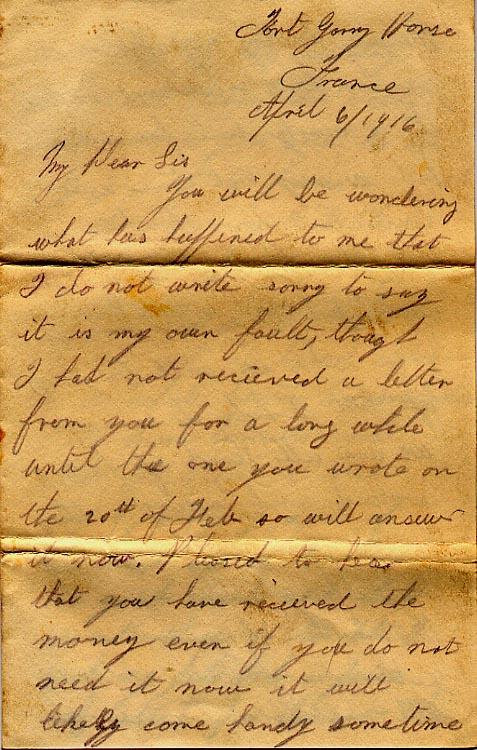 Fort Garry Horse
France
April 6/1916
My Dear Sis
You will be wondering
what has happened to me that
I do not write sorry to say
it is my own fault, though
I had not recieved a letter
from you for a long while
until the one you wrote on
the 20th of Feb so will answer
it now. Pleased to hear
that you have recieved the
money even if you do not
need it now it will
likely come handy sometime